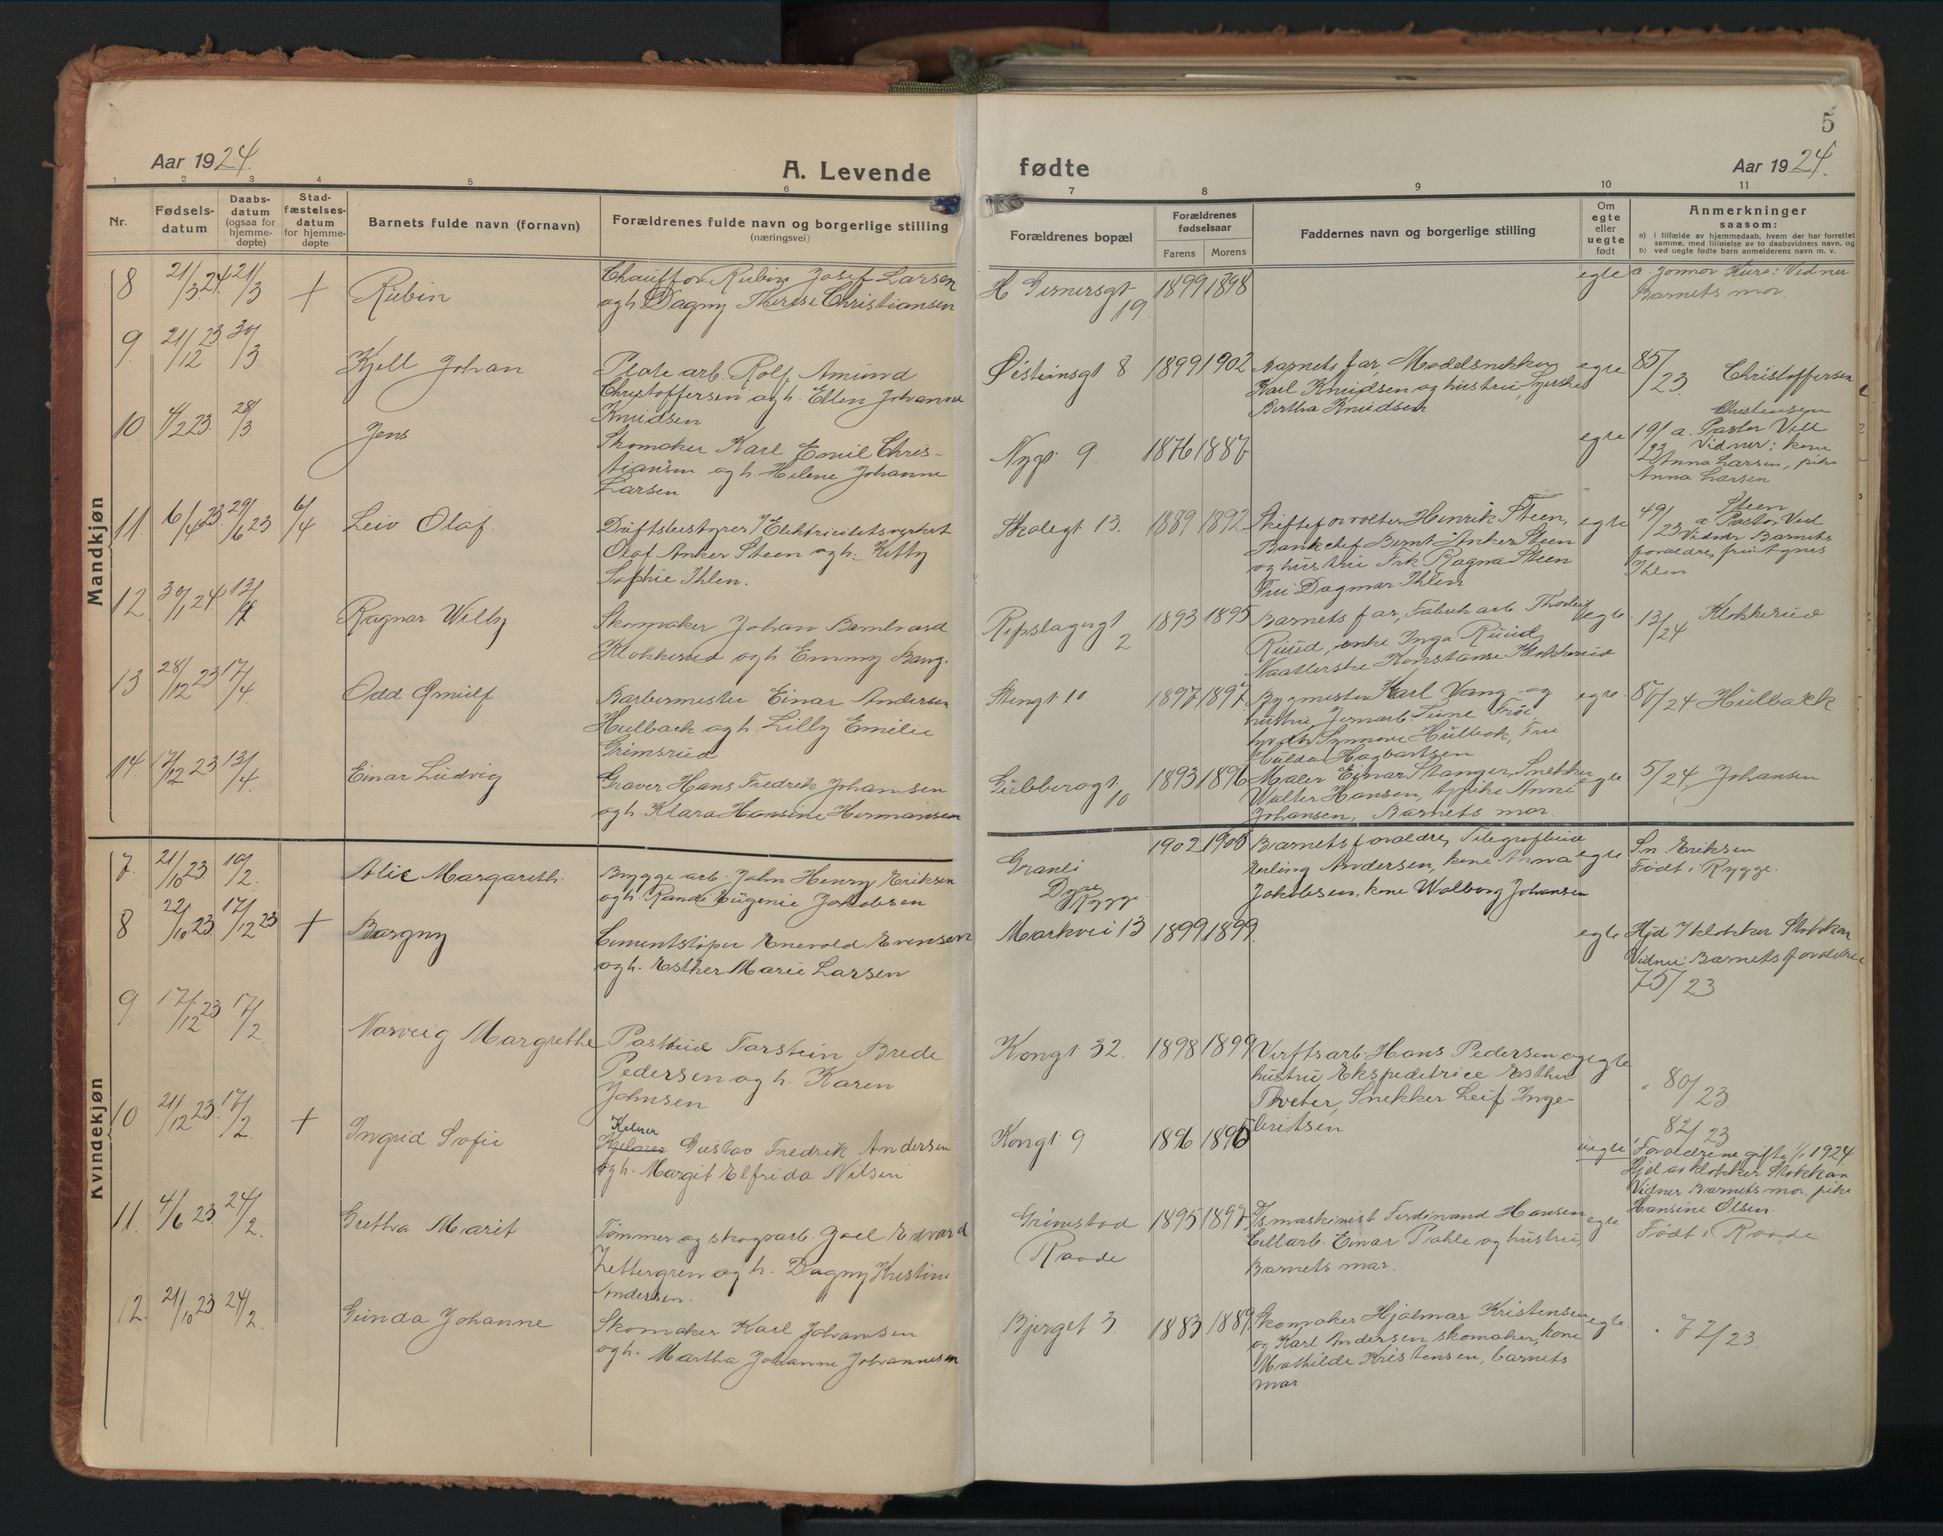 5
Aar 1924.
A. Levende
fødte
Aar 1924.
1 2 3 4 5 6 7 8 9 10 11
Nr.
Fødsels-
datum
Daabs-
datum
(ogsaa for
hjemme-
døpte)
Stad-
fæstelses-
datum
for hjemme-
døpte
Barnets fulde navn (fornavn)
Forældrenes fulde navn og borgerlige stilling
(næringsvei)
Forældrenes bopæl
Forældrenes
fødselsaar
Farens Morens
Faddernes navn og borgerlige stilling
Om
egte
eller
uegte
født
Anmerkninger
saasom:
a) i tilfælde av hjemmedaab, hvem der har forrettet
samme, med tilføielse av to daabsvidners navn, og
b) ved uegte født barn anmelderens navn m. v.
Mandkjøn
8 21/3 24. 21/3 + Rubin
Chauffør Rubin Josef Larsen
og h. Dagny Therese Christiansen
H Gernersgt
19.
1899 1898 egte
Vidner
Barnets mor.
9 21/12 23 30/3 Kjell Johan
Plate arb. Rolf Amund
Christoffersen og h. Ellen Johanne
Knudsen
Østionsgt 8 1899 1902
Barnets far, Modelsnekker
Karl Knudsen og hustru,
Bertha Knudsen
egte 85/23 Christoffersen
10 4/2 23 28/3 Jens
Skomaker Karl Emil Chris-
tiansen og h. Helene Johanne
Larsen
Nygt 9. 1876 1887 egte
Christensen
19/23 a. Pastor Vell
Vidner: kone
Anna Larsen, pike
Anna Larsen
11. 6/4 23 29/6 23 6/4 Leiv Olaf
Driftsbestyrer v/Elektricitetsverket
Olaf Anker Steen og h. Kitty
Sophie Ihlen.
Skolegt 13. 1889 1892.
Skifteforvalter Henrik Steen,
Bankchef Bernt Anker Steen
og hustru Frk Ragna Steen
Fru Dagmar Ihlen
egte 49/23 Steen
a Pastor Ved
Vidner Barnets
forældre, fru Agnes
Ihlen
12 30/1 24 13/4 Ragnar Willy
Skomaker Johan Bernhard
Klokkerud og h. Emmy Bang.
Repslagergt
2
1893 1895
Barnets far, Fabrik arb Thorleif
Ruud, enke Inga Ruud,
Naatlerske Konstanse Klokkerud
egte 13/24 Klokkerud
13 28/12 23 17/4 Odd Arnulf
Barbermester Einar Andersen
Hulback og h. Lilly Emilie
Grimsrud
Stengt 10 1897 1897
Bygmester Karl Vang og
hustru, Jernarb Sune
Synnøve Hulbak, Fru
Hulda Hagbartsen
egte. /24 Hulback
14. /12 23 13/4. Einar Ludvig
Graver Hans Fredrik Johansen
og h. Klara Hansine Hermansen
Gubberogt
10
1893 1896
Maler Einar Stanger, Snekker
Walter Hansen, pike Anne
Johansen, Barnets mor.
egte 5/24. Johansen
Kvindekjøn
7. 21/10 23 10/2. Alie Margareth.
Brygge arb. John Henry Eriksen
og h. Randi Eugenie Jakobsen
Granli
Dyre
Rygge
1902 1900
Barnets forældre, Telegrafbud
Erling Andersen, kone Anna
Jakobsen, kone Walborg Johansen
egte Sn Eriksen
Født i Rygge.
8 22/10 23 17/12 23 + Bargny
Cementstøper Enevold Evensen
og h. Esther Marie Larsen
Markvei 13 1899 1899. egte
Hjd v klokker Stokkan
Vidner: Barnets forældre
75/23
9 17/12 23 17/2. Norveig Margrethe
Postbud Torstein Brede
Pedersen og h. Karen
Johnsen
Kongt 32. 1898 1899
Verftsarb. Hans Pedersen og
hustru Ekspeditrice Esther
Tveter, Snekker Leif Inge-
britsen
egte " 80/23
10 21/12 23. 17/2. + Ingrid Sofie
Kelner
Gustav Fredrik Andersen
og h. Margit Elfrida Nilsen
Kongt 9 1896 1895 uegte
82/23
Forældrene gifte 1/1 1924
Hjd av klokker Stokkan
Vidner Barnets mor, pike
Hansine Olsen.
11. 4/6 23 24/2. Grethra Marit
Tømmer og skogarb. Joel Edvard
Zettergren og h. Dagny Kristine
Andersen.
Grimstad
Raade
1895 1897
D/s maskinist Ferdinand Hansen
Cellarb. Einar Dahle og hustru,
Barnets mor.
egte Født i Raade
12. 21/10 23 24/2. Gunda Johanne
Skomaker Karl Johansen
og h. Martha Johanne Johannesen
Bjerget 3. 1883 1889
Skomaker Hjalmar Kristensen
og Karl Andersen skomaker, kone
Mathilde Kristensen, barnets
mor
egte. " 72/23.